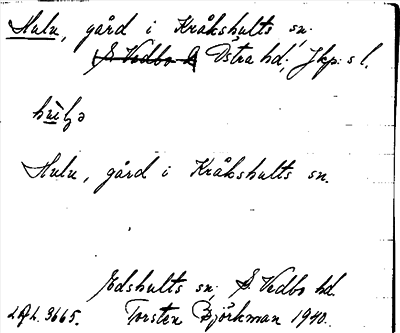 Hulu, gård i Kråkshults sn.
S Vedbo Östra hd, Jkp: s l.
Hulu, gård i Kråkshults sn.
Edshults sn, S Vedbo hd.
3665. Torsten Björkman 1940.